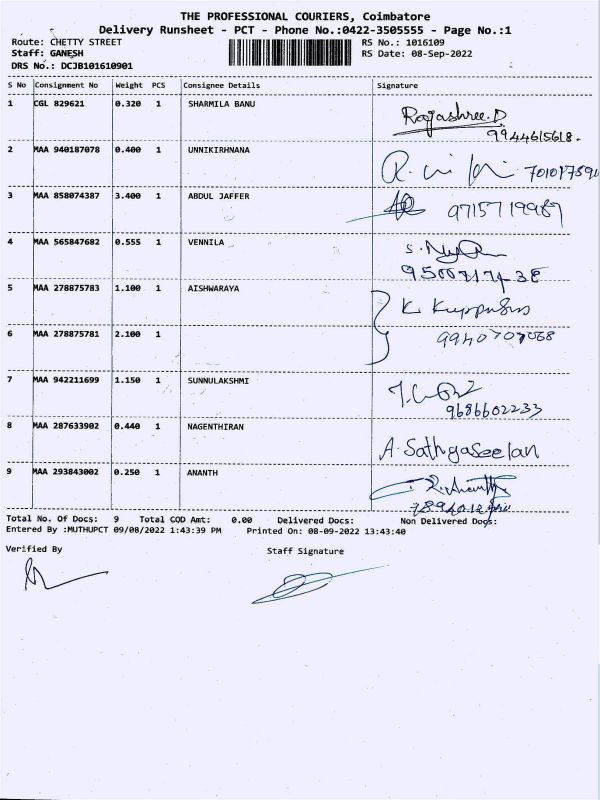 THE PROFESSIONAL COURIERS, Coimbatore
Delivery Runsheet - PCT - Phone No.:0422-3505555 - Page No.:1
Route: CHETTY STREET RS No.: 1016109
Staff: GANESH RS Date: 08-Sep-2022
DRS No.: DCJB101610901
S No Consignment No Weight PCS Consignee Details Signature
1 CGL 829621 0.320 1 SHARMILA BANU Rajashree.D
9944615618.
2 MAA 940187078 0.400 1 UNNIKIRHNANA
3 MAA 858074387 3.400 1 ABDUL JAFFER 9715719987
4 MAA 565847682 0.555 1 VENNILA
5 MAA 278875783 1.100 1 AISHWARAYA
6 MAA 278875781 2.100 1
7 MAA 942211699 1.150 1 SUNNULAKSHMI
9686602233
8 MAA 287633902 0.440 1 NAGENTHIRAN A. Sathyaseelan
9 MAA 293843002 0.250 1 ANANTH
Total No. Of Docs: 9 Total COD Amt: 0.00 Delivered Docs: Non Delivered Docs:
Entered By :MUTHUPCT 09/08/2022 1:43:39 PM Printed On: 08-09-2022 13:43:40
Verified By Staff Signature